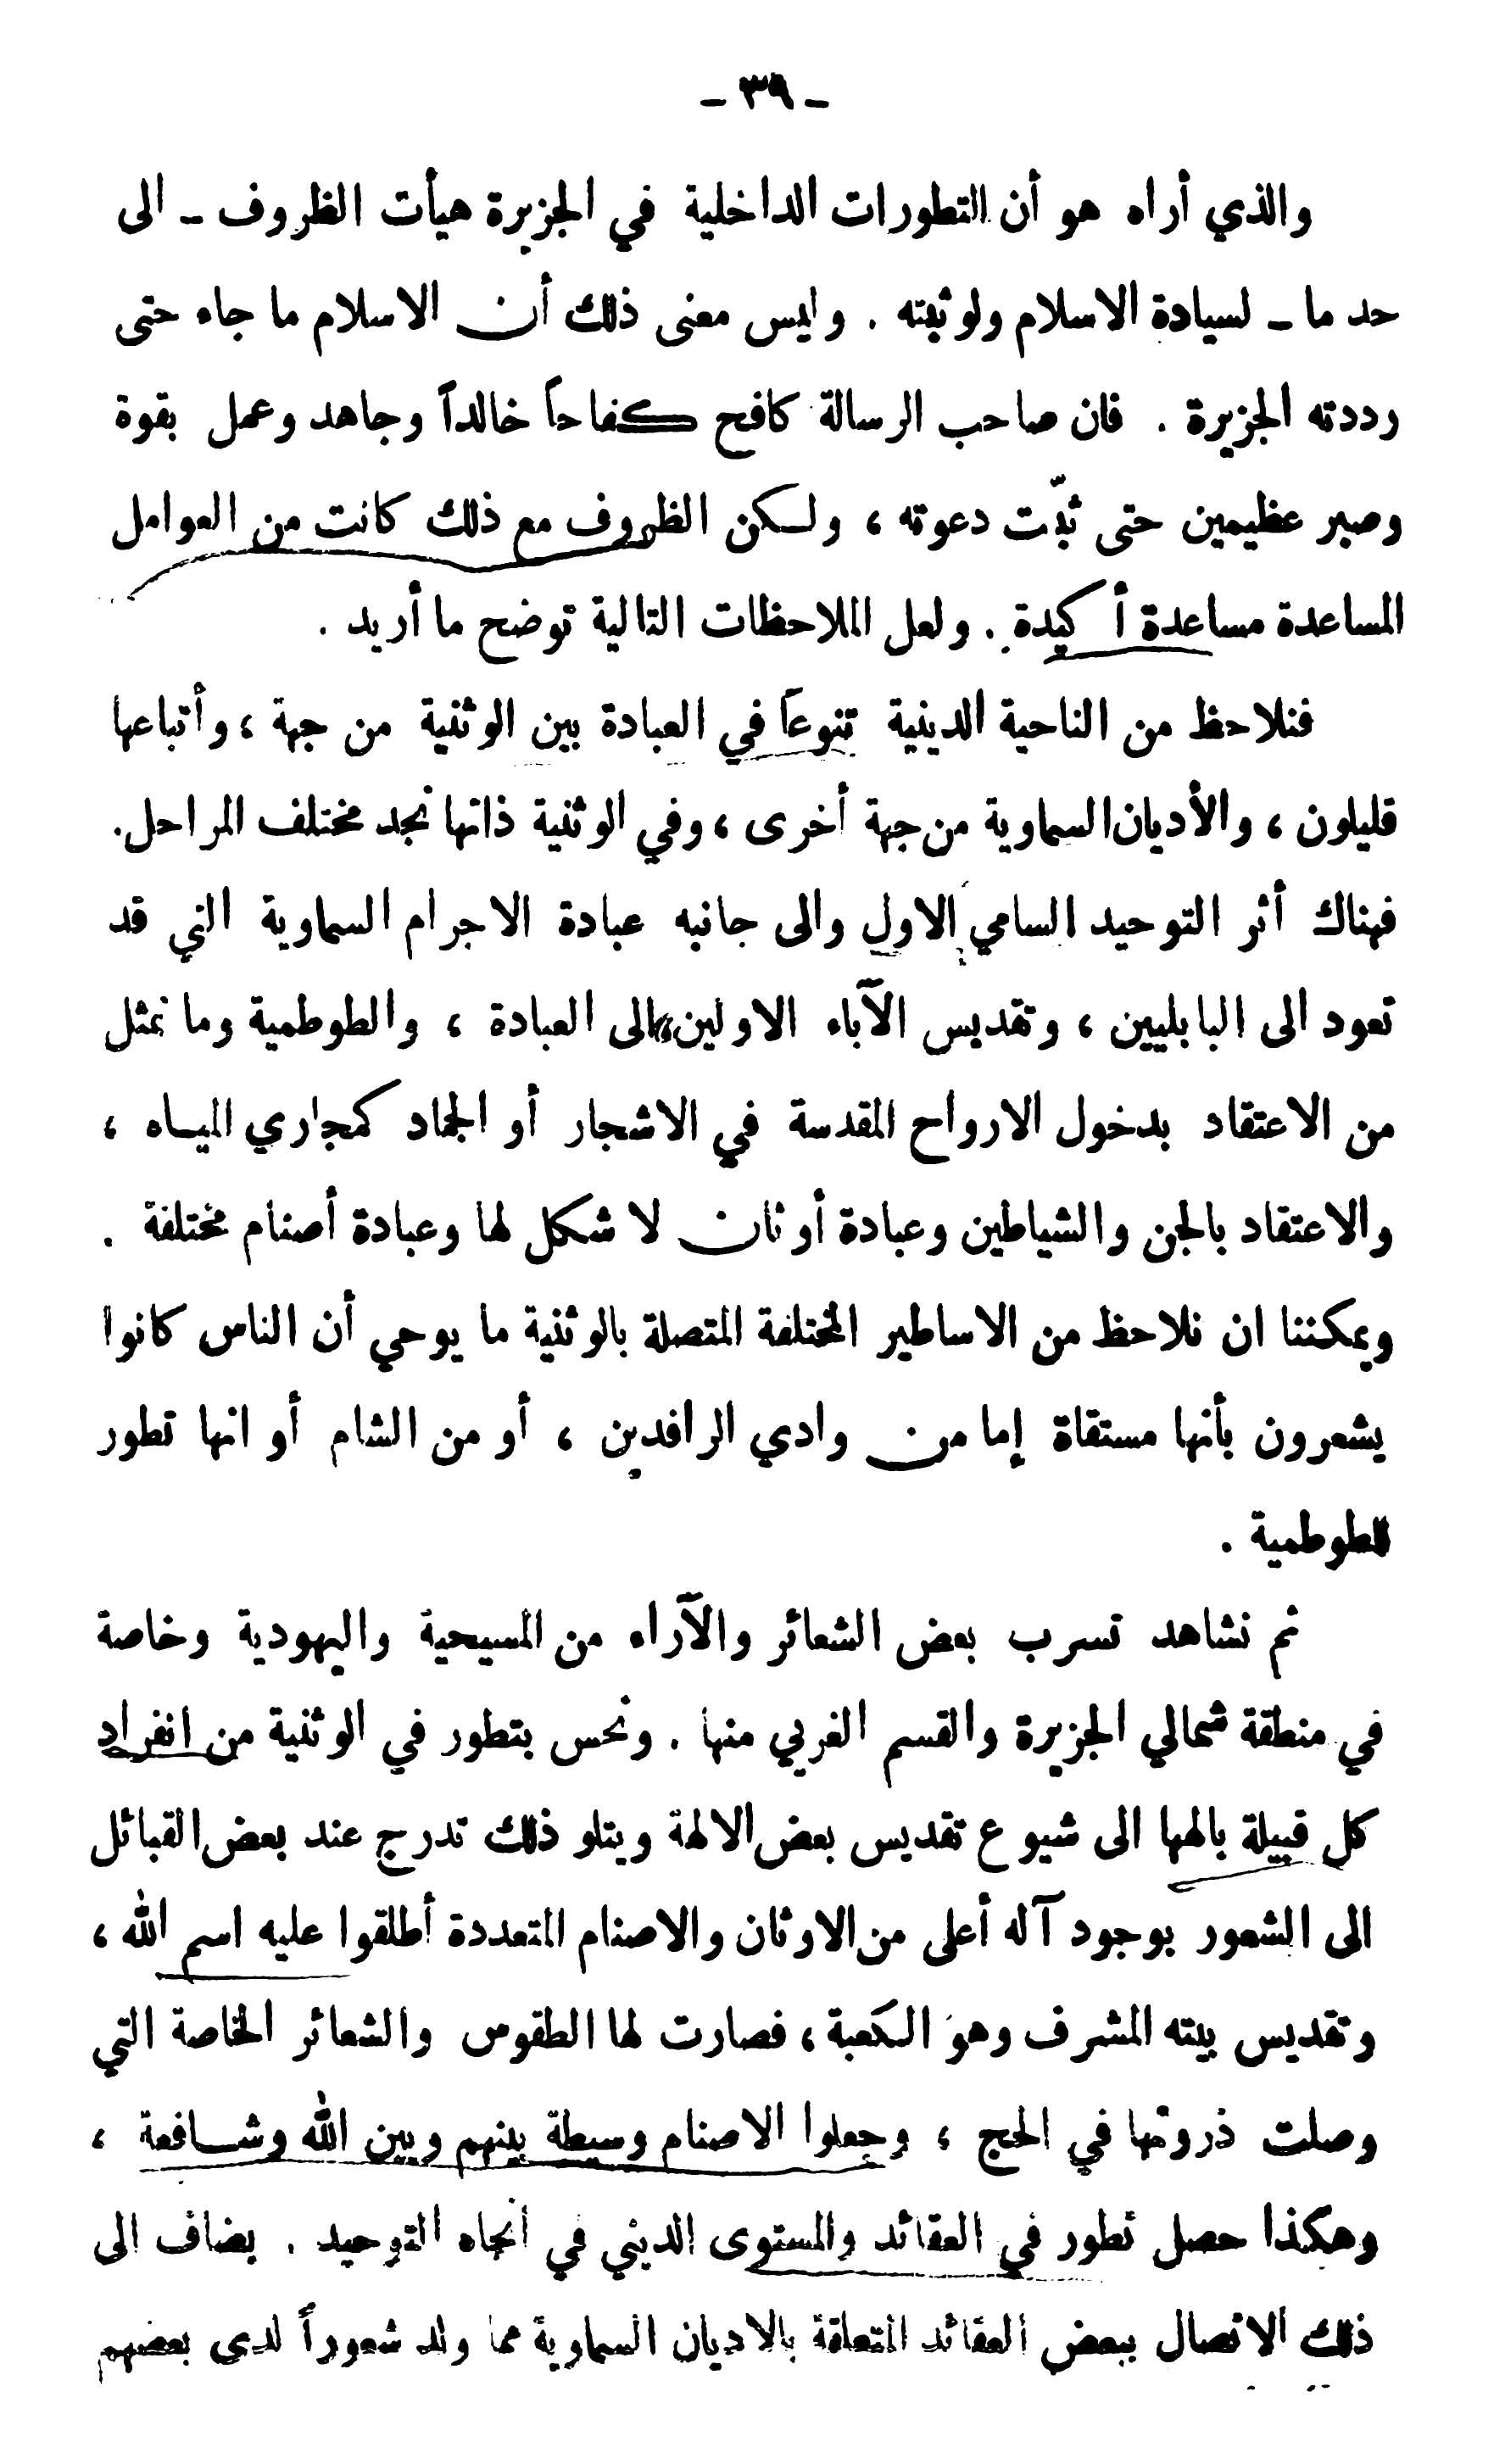 - ٣٩ -
والذي أراه هو أن التطورات الداخلية في الجزيرة هيأت الظروف - الى
حد ما - لسيادة الاسلام ولوثبته . وليس معنى ذلك أن الاسلام ما جاء حتى
رددته الجزيرة . فان صاحب الرسالة كافح كفاحاً خالداً وجاهد وعمل بقوة
وصبر عظيمين حتى ثبّت دعوته ، ولكن الظروف مع ذلك كانت من العوامل
المساعدة مساعدة أكيدة . ولعل الملاحظات التالية توضح ما أريد .
فنلاحظ من الناحية الدينية تنوعاً في العبادة بين الوثنية من جهة ، وأتباعها
قليلون ، والأديان السماوية من جهة أخرى ، وفي الوثنية ذاتها نجد مختلف المراحل .
فهناك أثر التوحيد السامي الاول والى جانبه عبادة الاجرام السماوية التي قد
تعود الى البابليين ، وتقديس الآباء الاولين الى العبادة ، والطوطمية وما تمثل
من الاعتقاد بدخول الارواح المقدسة في الاشجار أو الجماد كمجاري المياه ،
والاعتقاد بالجن والشياطين وعبادة أوثان لا شكل لها وعبادة أصنام مختلفة .
ويمكننا ان نلاحظ من الاساطير المختلفة المتصلة بالوثنية ما يوحي أن الناس كانوا
يشعرون بأنها مستقاة إما من وادي الرافدين ، أو من الشام أو انها تطور
للطوطمية .
ثم نشاهد تسرب بعض الشعائر والآراء من المسيحية واليهودية وخاصة
في منطقة شمالي الجزيرة والقسم الغربي منها . ونحس بتطور في الوثنية من انفراد
كل قبيلة بالهها الى شيوع تقديس بعض الالهة ويتلو ذلك تدرج عند بعض القبائل
الى الشعور بوجود آله أعلى من الاوثان والاصنام المتعددة أطلقوا عليه اسم الله ،
وتقديس بيته المشرف وهو الكعبة ، فصارت لها الطقوس والشعائر الخاصة التي
وصلت ذروتها في الحج ، وجعلوا الاصنام وسيطة بينهم وبين الله وشافعة ،
وهكذا حصل تطور في العقائد والمستوى الديني في اتجاه التوحيد . يضاف الى
ذلك الاتصال ببعض العقائد المتعلقة بالاديان السماوية مما ولد شعوراً لدى بعضهم